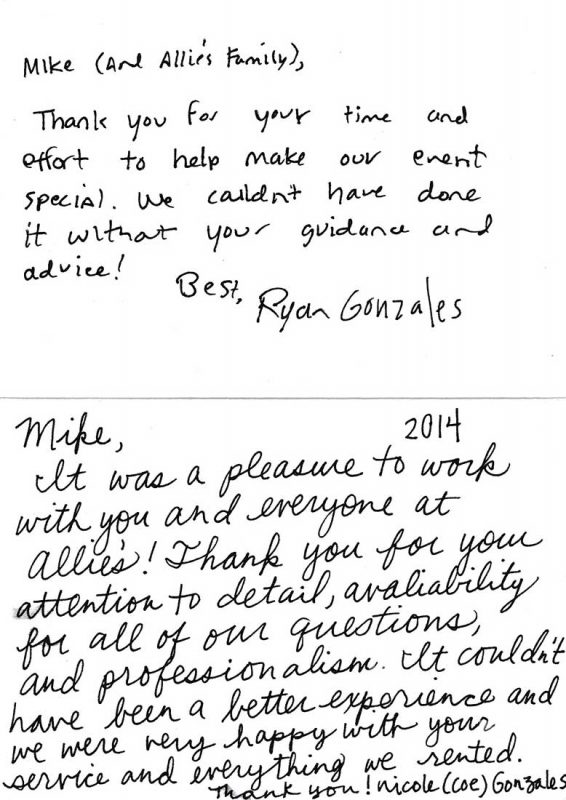 Mike (And Allie's Family),
Thank you for your time and
effort to help make our event
special. We couldn't have done
it without your guidance and
advice!
Best,
Ryan Gonzales
Mike, 2014
It was a pleasure to work
with you and everyone at
Allie's! Thank you for your
attention to detail, avaliability
for all of our questions,
and professionalism. It couldn't
have been a better experience and
we were very happy with your
service and everything we rented.
Thank you! Nicole (Coe) Gonzales